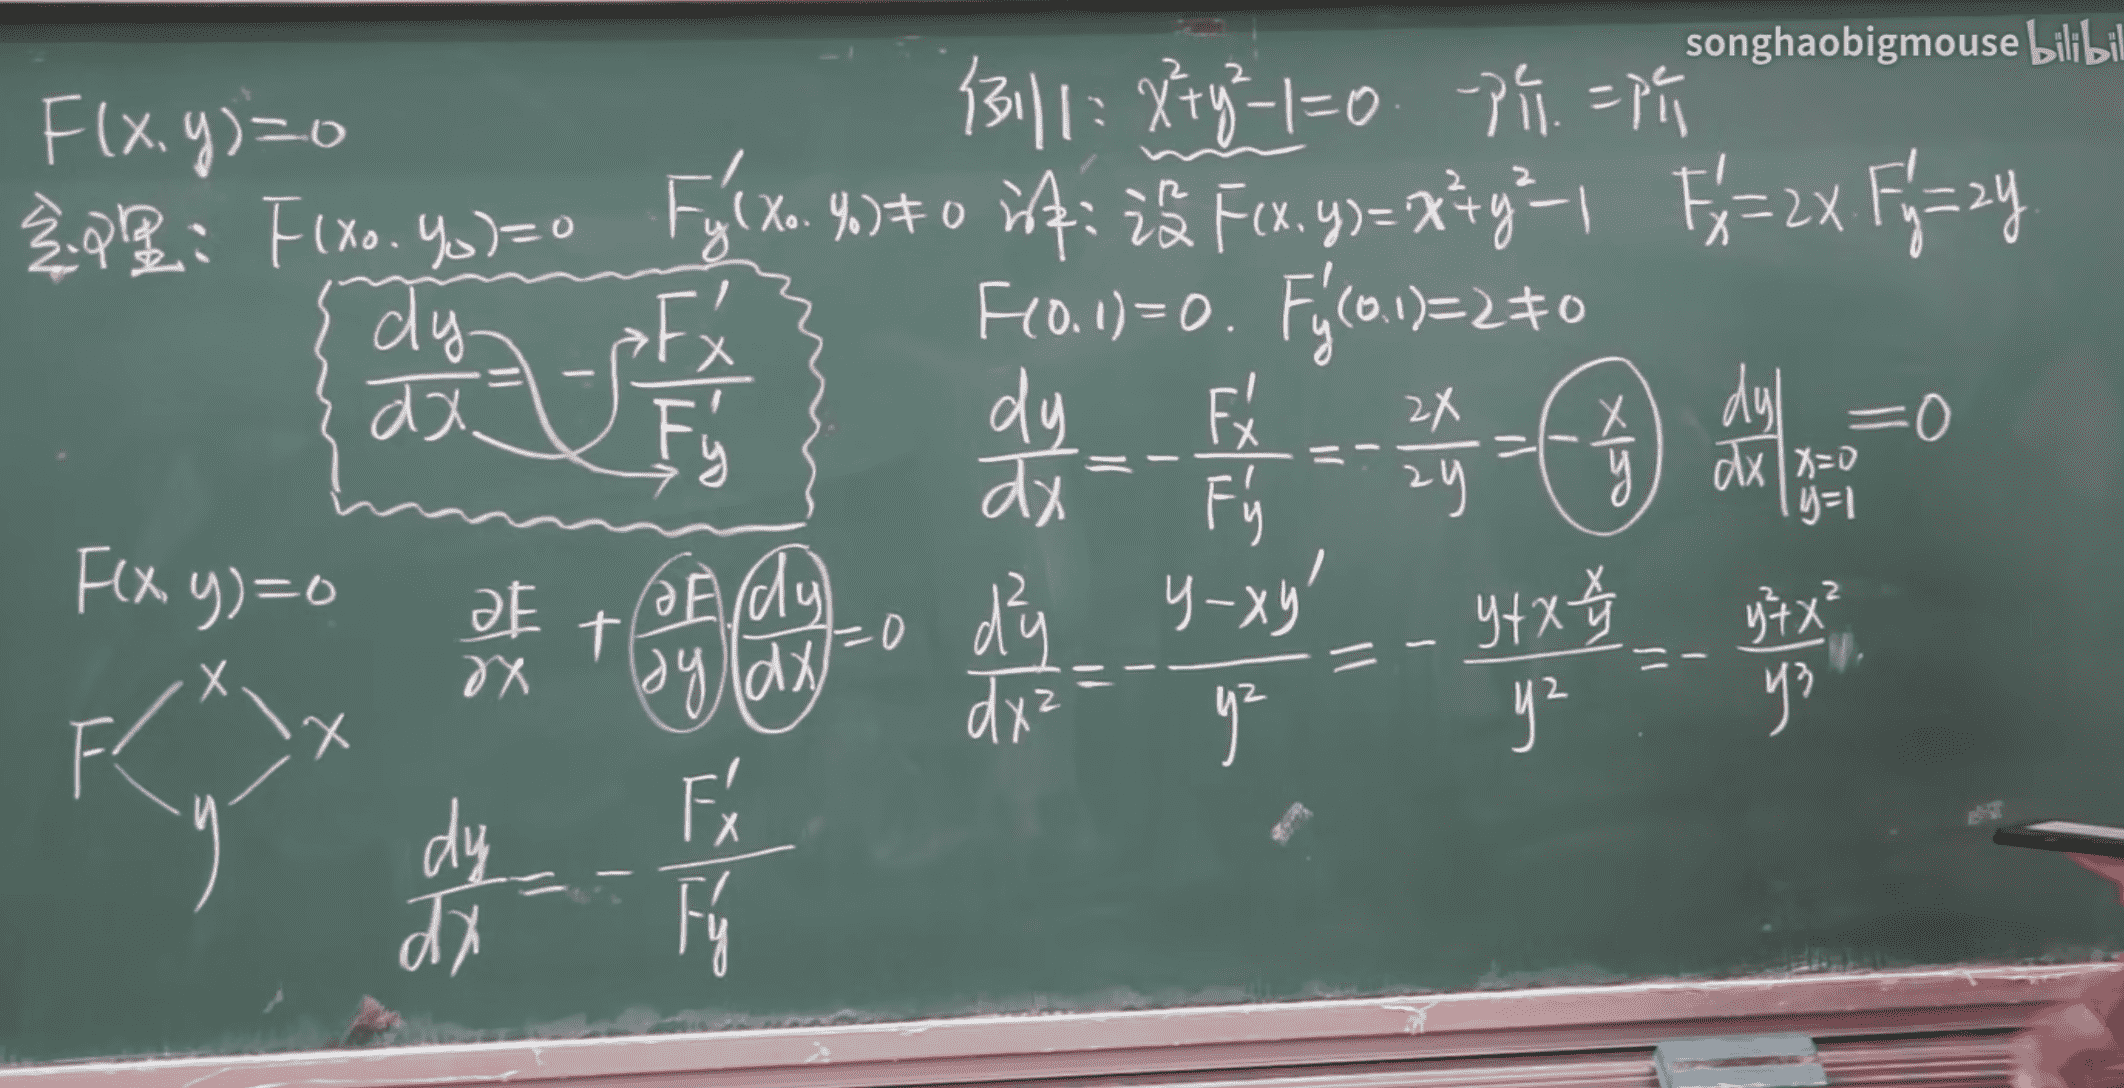 songhaobigmouse bilibil
F(x,y)=0
定理: F(x₀,y₀)=0 F'y(x₀,y₀)≠0
dy/dx = - F'x/F'y
F(x,y)=0
∂F/∂x + ∂F/∂y · dy/dx = 0
F x y x
dy/dx = - F'x/F'y
例1: x²+y²-1=0. 一阶. 二阶
译: 设 F(x,y)=x²+y²-1 F'x=2x. F'y=2y.
F(0,1)=0. F'y(0,1)=2≠0
dy/dx = - F'x/F'y = - 2x/2y = - x/y dy/dx| x=0 y=1 =0
d²y/dx² = - (y-xy')/y² = - (y+x x/y)/y² = - (y²+x²)/y³